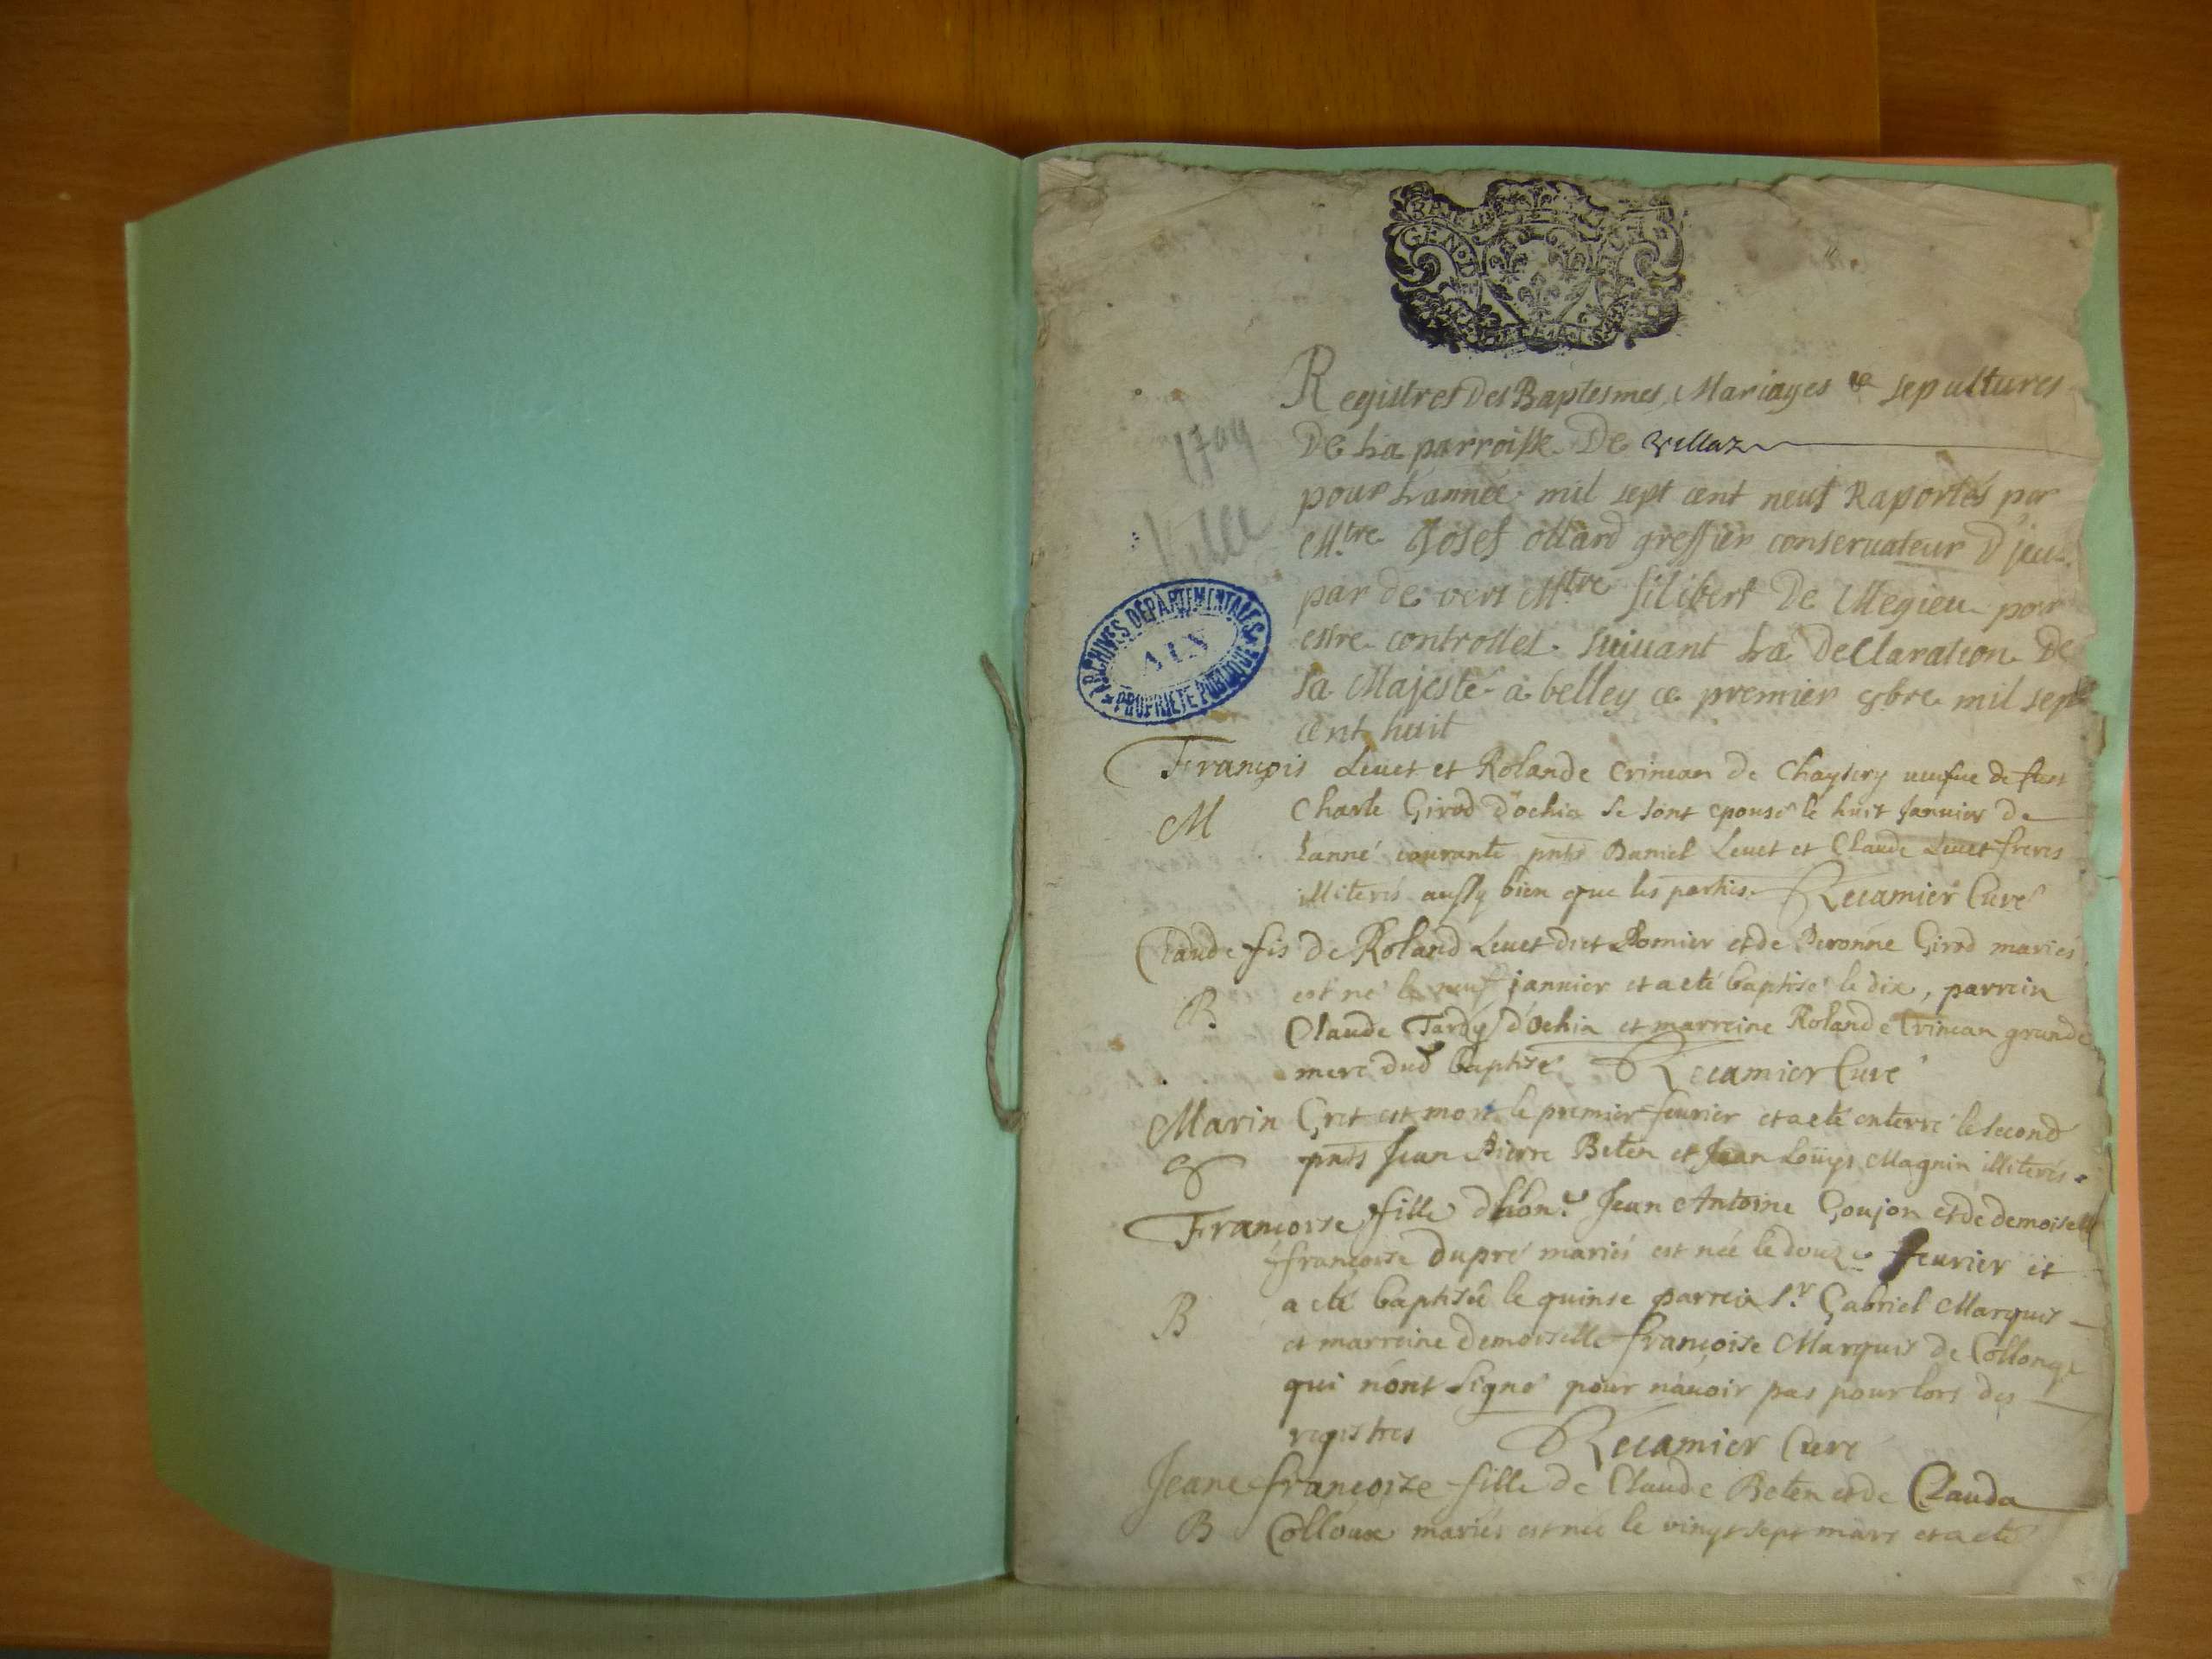 GEN
Registres Des Baptesmes, Mariages & sepultures
De La parroisse De Villaz
1709
pour L'année mil sept cent neuf Raportés par
Mtre Josef ollard greffier conservateur d'jeu
Ville
par de vers Mtre filibert De Megieu pour
estre controllet suivant La Declaration De
ARCHIVES DEPARTEMENTALES
AIN
PROPRIETE PUBLIQUE
sa Majesté a belley ce premier 8bre mil sept
cent huit
François Levet et Rolande Crinean de Chaysery veufve de
M Charle Girod d'ochia se sont epousé le huit Janvier de
Lanné courante pnts Daniel Levet et Claude Levet freres
illiterés aussy bien que les parties. Recamier Curé
Claude fis de Roland Levet dict Romier et de Peronne Girod mariés
B est né le neuf janvier et a eté baptisé le dix, parrein
Claude Tardy d'Ochia et marreine Rolande Crinean grande
mere dud baptisé Recamier Curé
Marin Gret est mort le premier fevrier et a eté enterré le second
S pnts Jean Pierre Beten et Jean Loüys Magnin illiterés.
Francoise fille d'hon.e Jean Antoine Goujon et de demoiselle
françoise dupré mariés est née le douze fevrier et
B a eté baptisée le quinse parrein s.r Gabriel Marquis
et marreine demoiselle françoise Marquis de Collonge
qui n'ont signé pour n'avoir pas pour lors des
registres Recamier Curé
Jeane françoize fille de Claude Beten et de Clauda
B Colloux mariés est née le vingt sept mars et a eté